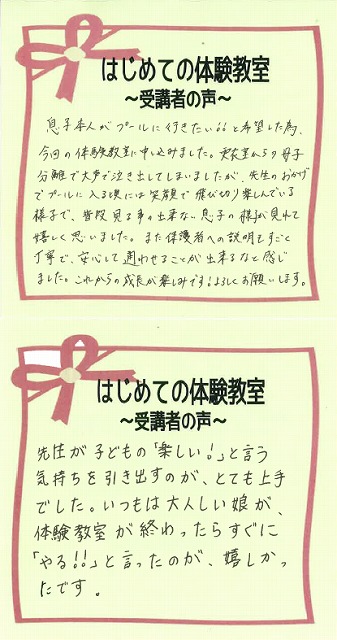 はじめての体験教室
～受講者の声～
息子本人がプールに行きたい!!と希望した為、
今回の体験教室に申し込みました。更衣室から母子
分離で大声で泣き出してしまいましたが、先生のおかげ
でプールに入る頃には笑顔で飛び切り楽しんでいる
様子で、普段見る事の出来ない息子の様が見れて
嬉しく思いました。また保護者への説明もすごく
丁寧で、安心して通わせることが出来るなと感じ
ました。これからの成長が楽しみです！よろしくお願いします。
はじめての体験教室
～受講者の声～
先生が子どもの「楽しい！」と言う
気持ちを引き出すのが、とても上手
でした。いつもは大人しい娘が、
体験教室が終わったらすぐに
「やる!!」と言ったのが、嬉しかっ
たです。